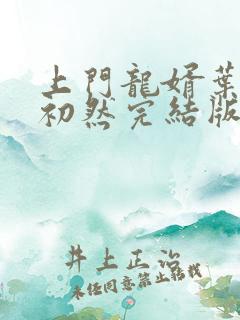 上門龍婿葉
初然完結版
井上正治
未经同意禁止转载